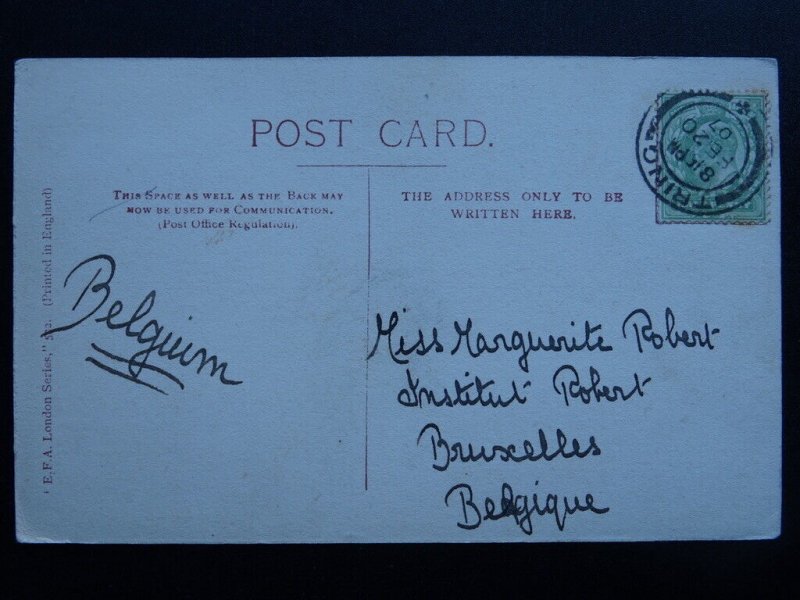 POST CARD.
THIS SPACE AS WELL AS THE BACK MAY
NOW BE USED FOR COMMUNICATION.
(Post Office Regulation).
THE ADDRESS ONLY TO BE
WRITTEN HERE.
TRING
Belgium
Miss Marguerite Robert
Institut Robert
Bruxelles
Belgique
E.F.A. London Series," (Printed in England)